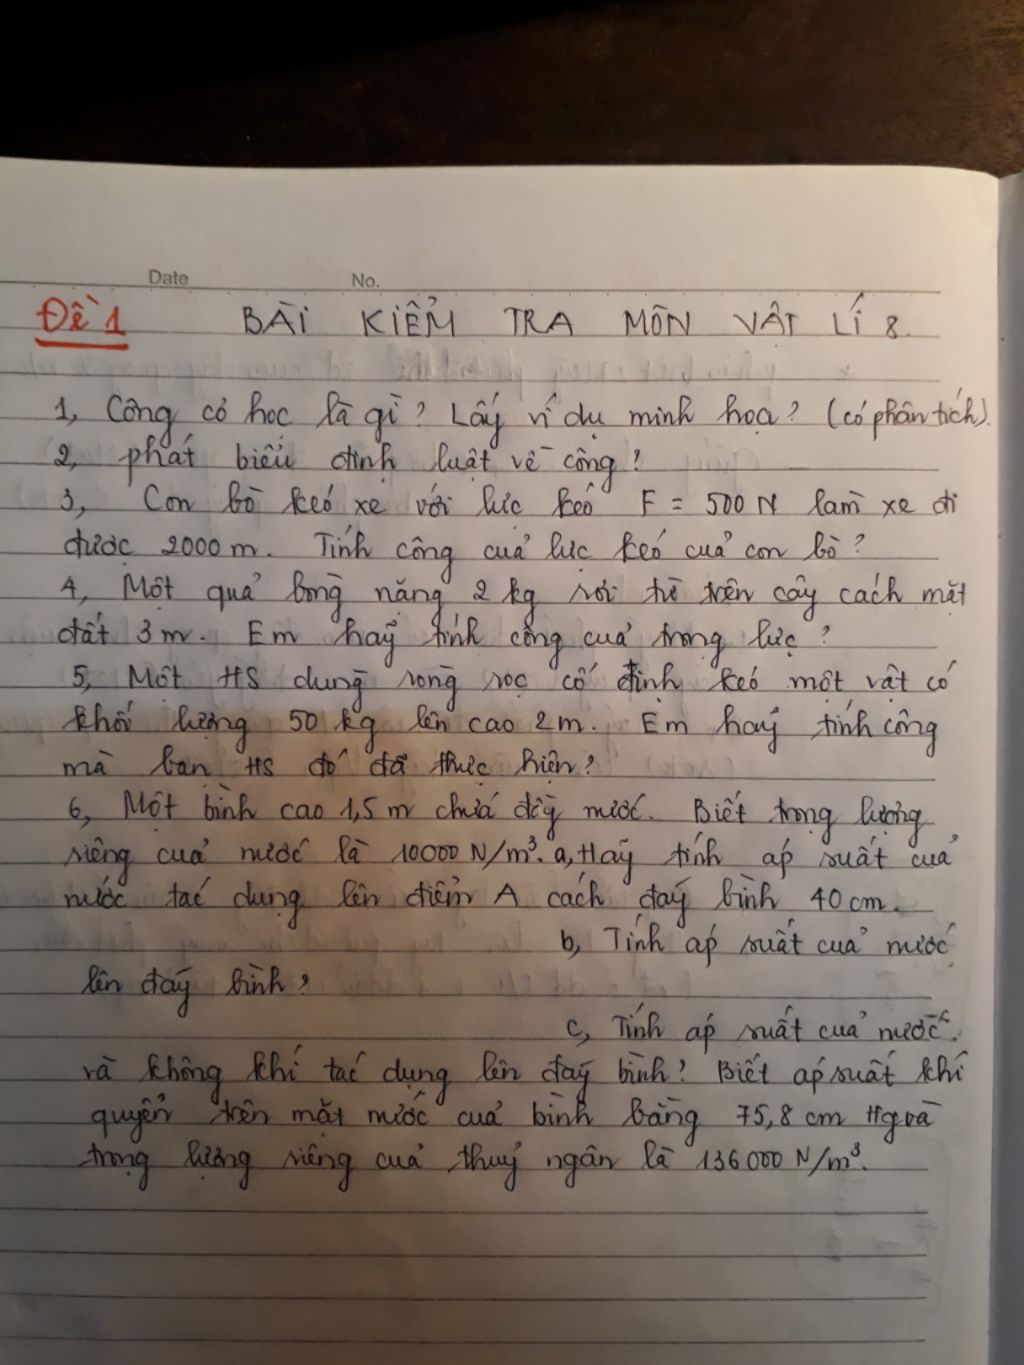 Date No.
Đề 1 BÀI KIỂM TRA MÔN VẬT LÍ 8.
1, Công cơ học là gì? Lấy ví dụ minh họa? (có phân tích).
2, phát biểu định luật về công?
3, Con bò kéo xe với lực kéo F = 500 N làm xe đi
được 2000 m. Tính công của lực kéo của con bò?
4, Một quả bóng nặng 2 kg rơi từ trên cây cách mặt
đất 3 m. Em hãy tính công của trọng lực?
5, Một HS dùng ròng rọc cố định kéo một vật có
khối lượng 50 kg lên cao 2 m. Em hãy tính công
mà bạn HS đó đã thực hiện?
6, Một bình cao 1,5 m chứa đầy nước. Biết trọng lượng
riêng của nước là 10000 N/m³. a, Hãy tính áp suất của
nước tác dụng lên điểm A cách đáy bình 40 cm.
b, Tính áp suất của nước
lên đáy bình?
c, Tính áp suất của nước
và không khí tác dụng lên đáy bình? Biết áp suất khí
quyển trên mặt nước của bình bằng 75,8 cm Hg và
trọng lượng riêng của thuỷ ngân là 136000 N/m³.